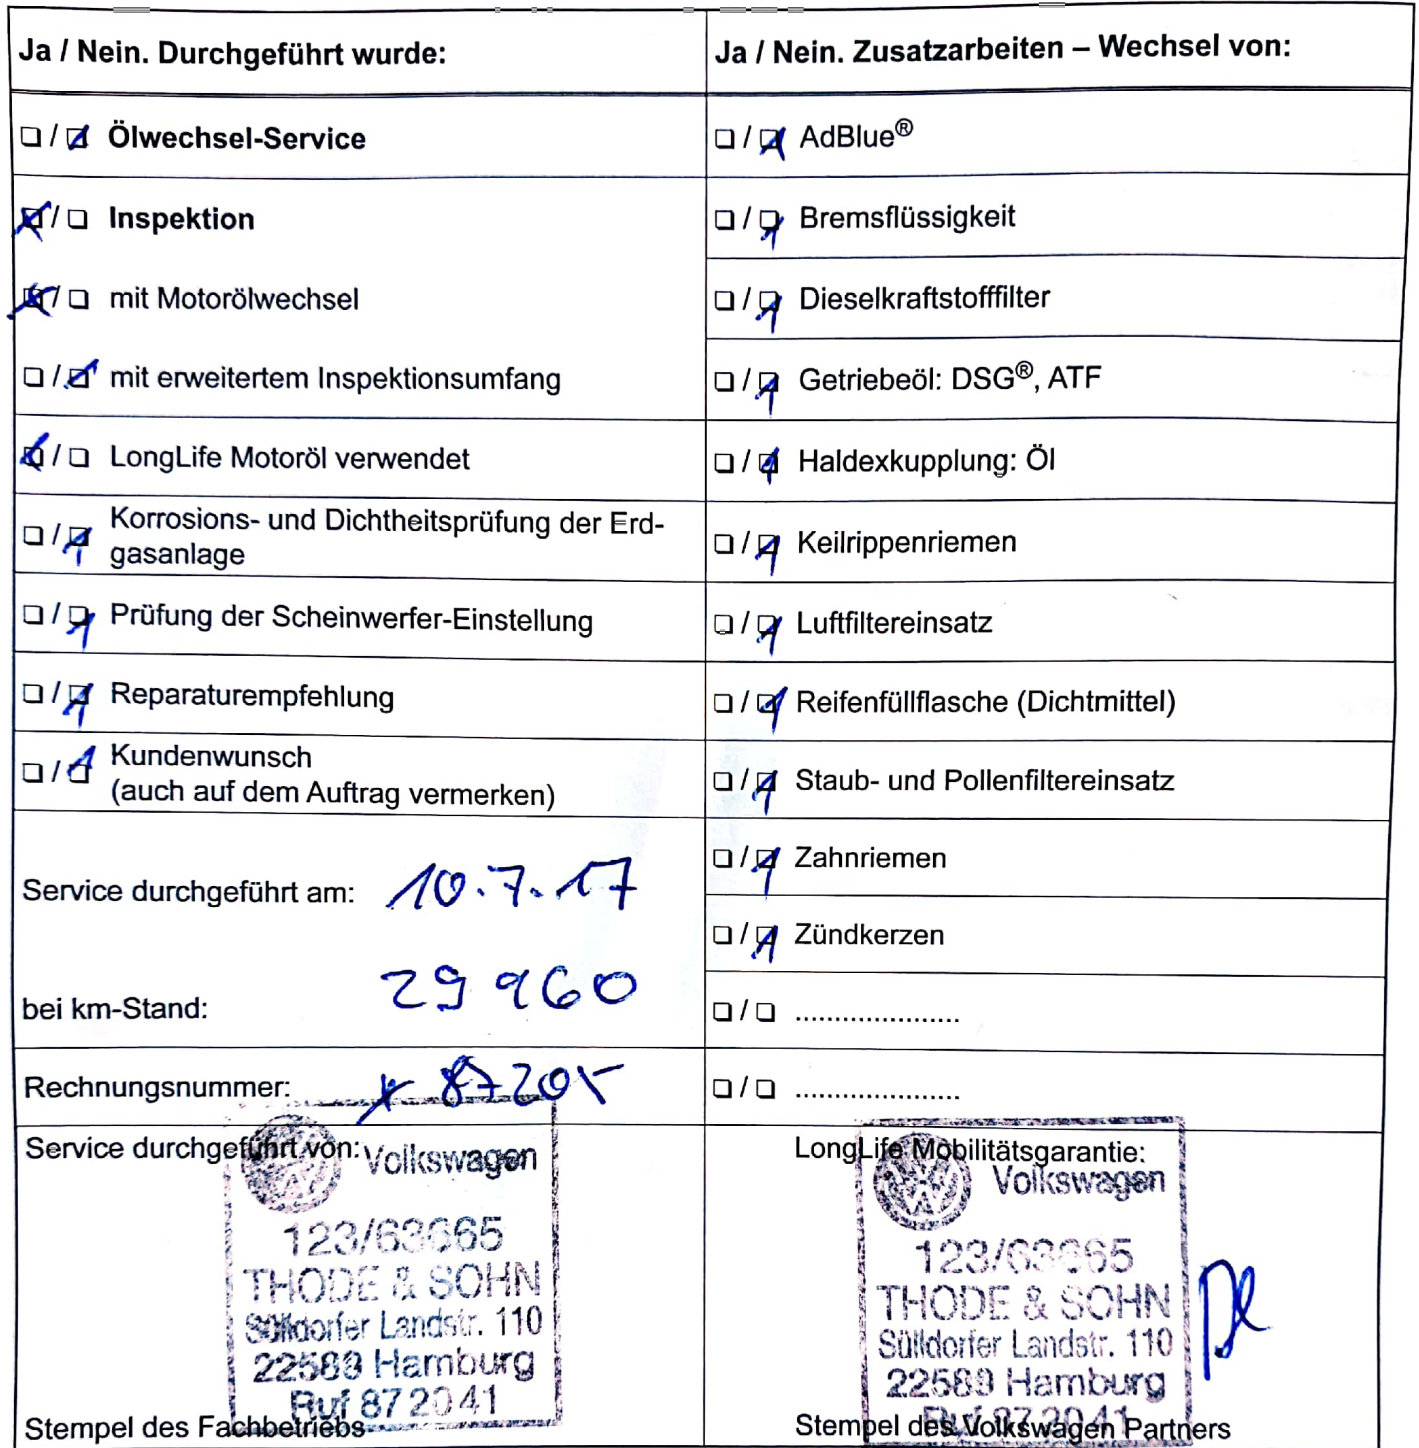 Ja / Nein. Durchgeführt wurde:
☐ / ☒ Ölwechsel-Service
☒ / ☐ Inspektion
☒ / ☐ mit Motorölwechsel
☐ / ☒ mit erweitertem Inspektionsumfang
☒ / ☐ LongLife Motoröl verwendet
☐ / ☒ Korrosions- und Dichtheitsprüfung der Erd-
gasanlage
☐ / ☒ Prüfung der Scheinwerfer-Einstellung
☐ / ☒ Reparaturempfehlung
☐ / ☒ Kundenwunsch
(auch auf dem Auftrag vermerken)
Service durchgeführt am: 10.7.17
bei km-Stand: 29 960
Rechnungsnummer: * 87205
Service durchgeführt von:
Volkswagen
123/63665
THODE & SOHN
Sülldorfer Landstr. 110
22589 Hamburg
Ruf 87 20 41
Stempel des Fachbetriebs
Ja / Nein. Zusatzarbeiten – Wechsel von:
☐ / ☒ AdBlue®
☐ / ☒ Bremsflüssigkeit
☐ / ☒ Dieselkraftstofffilter
☐ / ☒ Getriebeöl: DSG®, ATF
☐ / ☒ Haldexkupplung: Öl
☐ / ☒ Keilrippenriemen
☐ / ☒ Luftfiltereinsatz
☐ / ☒ Reifenfüllflasche (Dichtmittel)
☐ / ☒ Staub- und Pollenfiltereinsatz
☐ / ☒ Zahnriemen
☐ / ☒ Zündkerzen
☐ / ☐ .....................
☐ / ☐ .....................
LongLife Mobilitätsgarantie:
Volkswagen
123/63665
THODE & SOHN
Sülldorfer Landstr. 110
22589 Hamburg
Ruf 87 20 41
Stempel des Volkswagen Partners